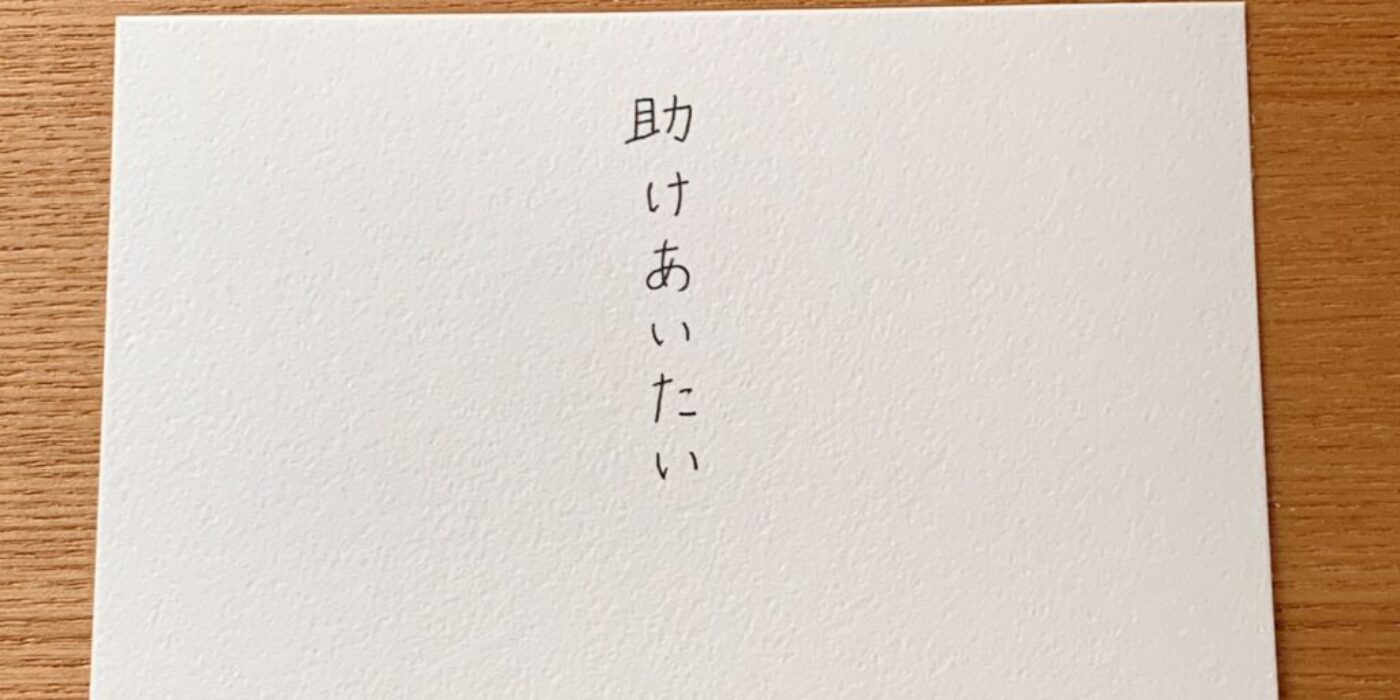 助けあいたい